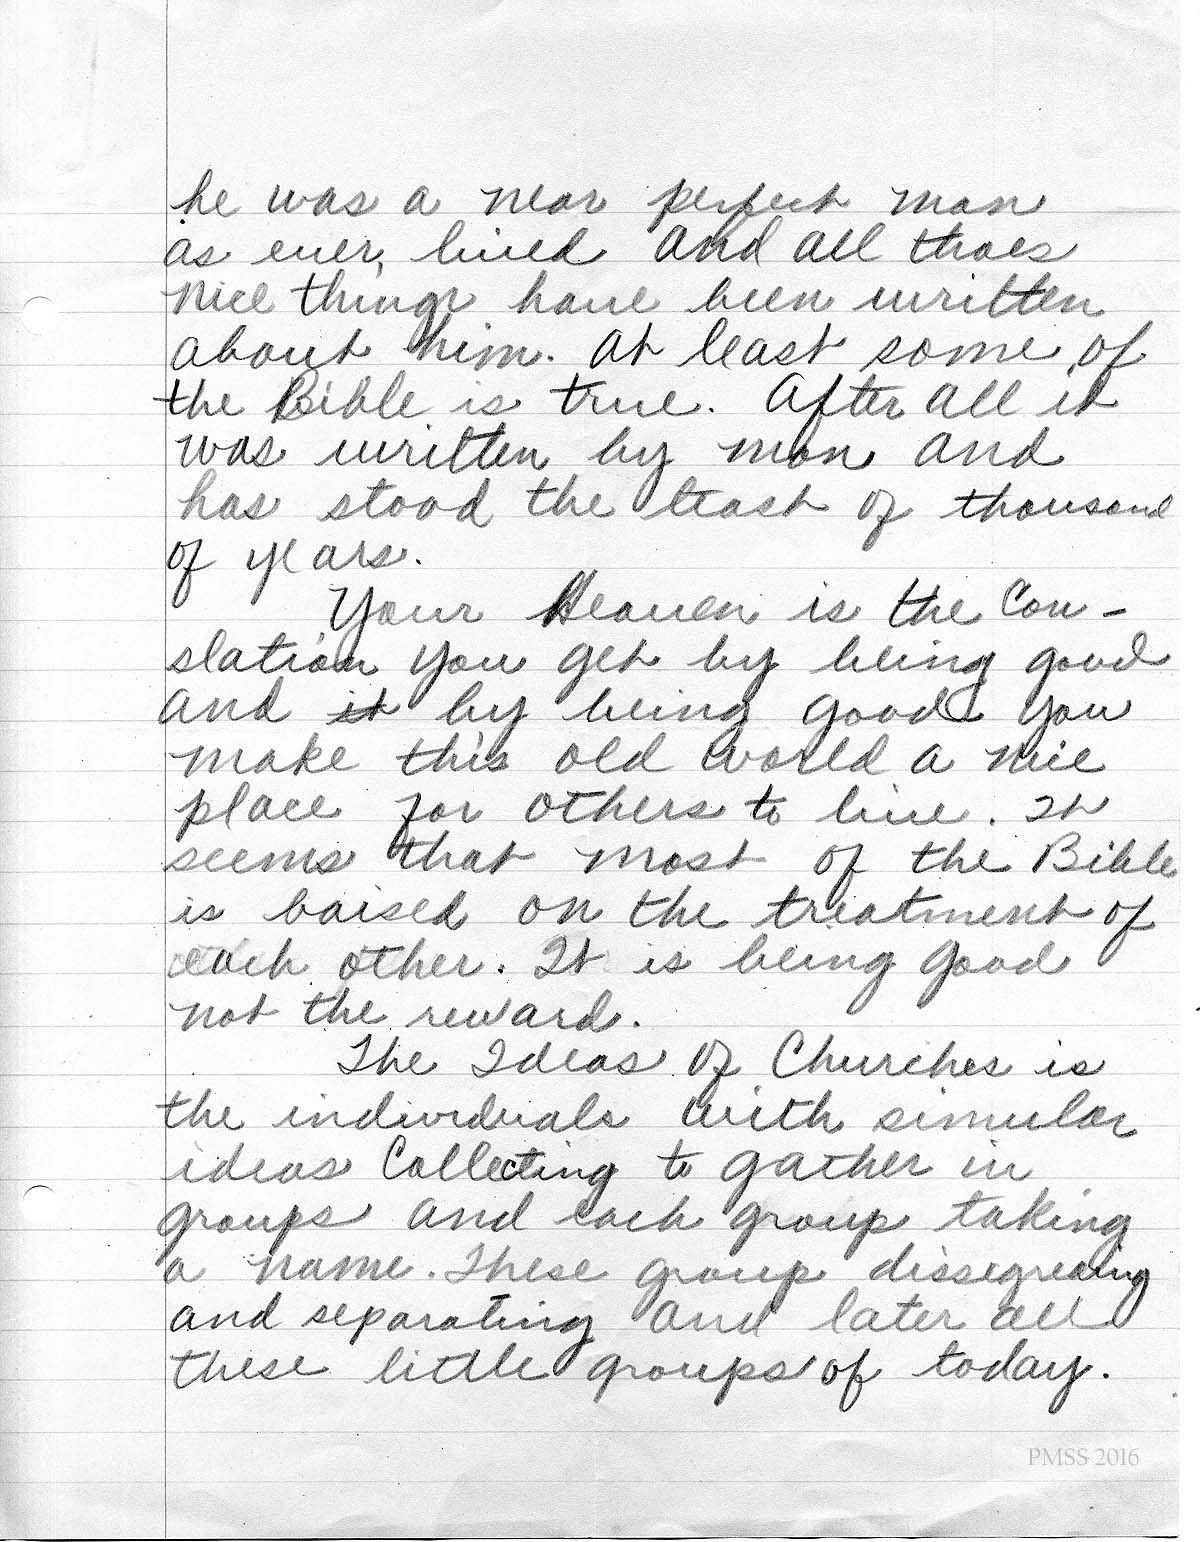 he was a near perfect man
as ever, lived and all thoes
nice things have been written
about him. At least some of
the Bible is true. After all it
was written by man and
has stood the teast of thousand
of years.
Your Heaven is the Con-
slation you get by being good
and it by being good you
make this old world a nice
place for others to live. It
seems that most of the Bible
is baised on the treatment of
each other. It is being good
not the reward.
The Ideas of Churches is
the individuals with simular
ideas Collecting to gather in
groups and each group taking
a name. These group dissegreaing
and separating and later all
these little groups of today.
PMSS 2016